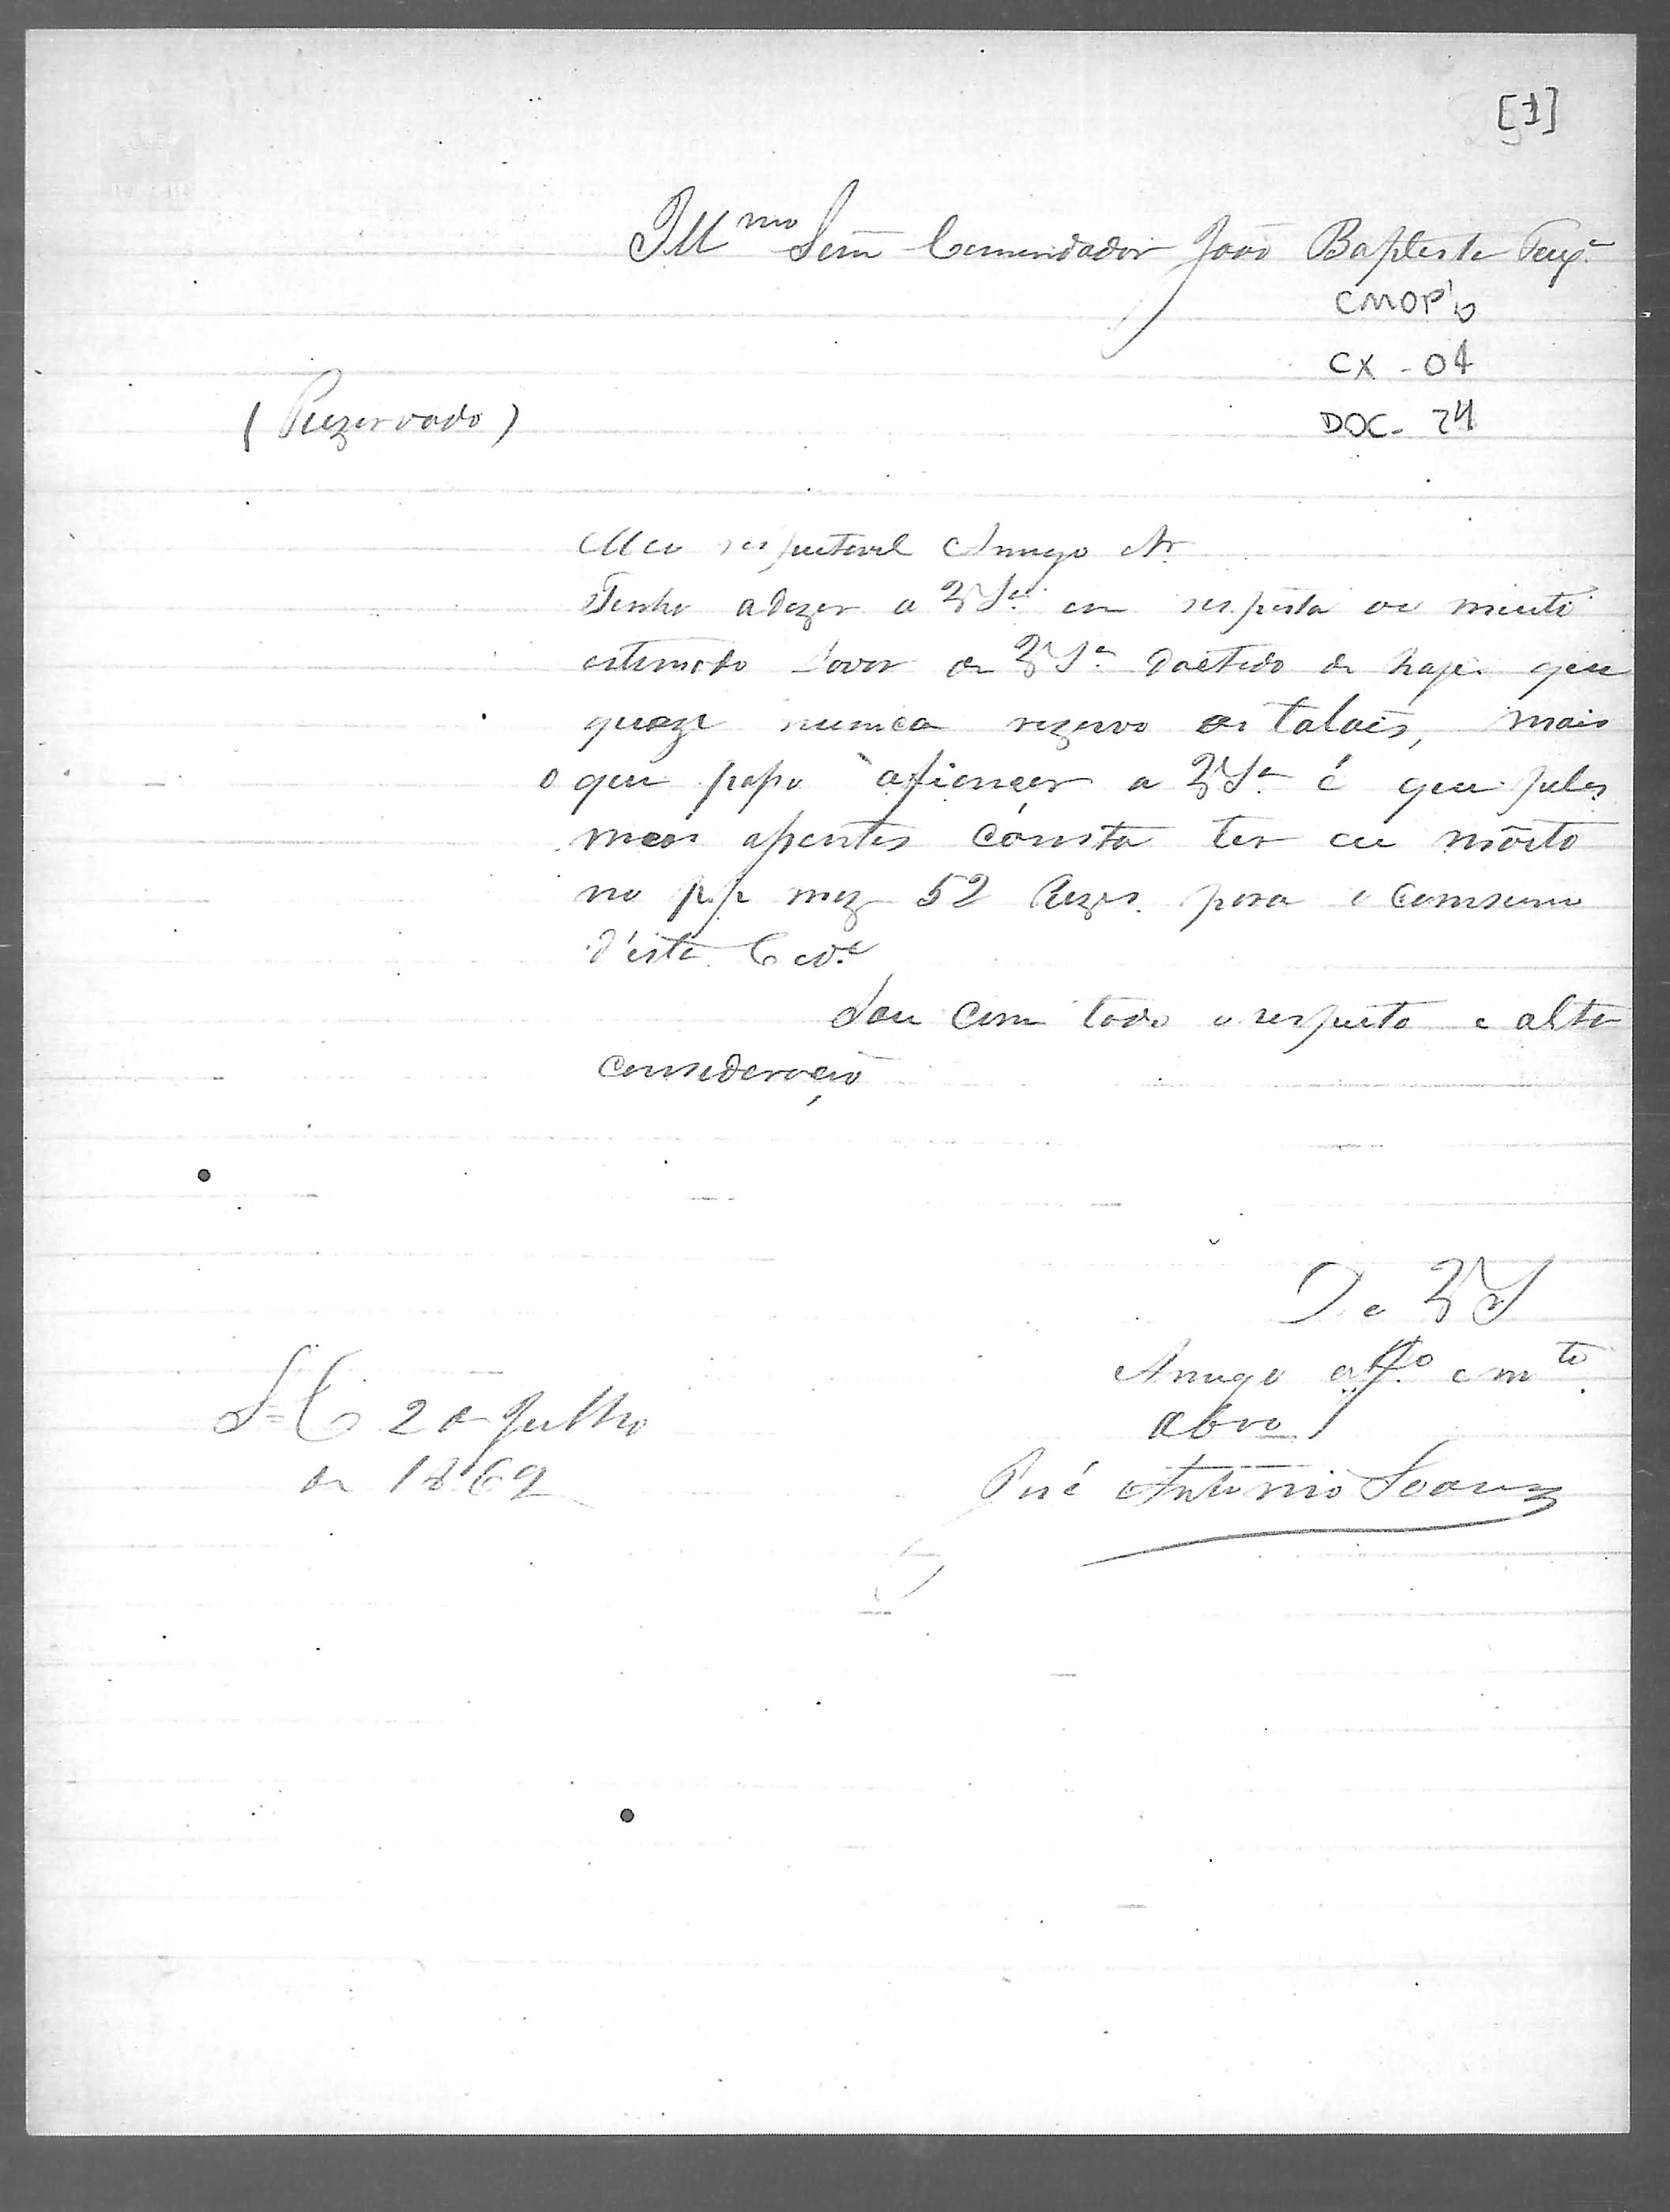 [1]
Ill^mo Senr̃ Comendador João Baptista Teix.ª
CMOP
CX - 04
DOC - 24
(Rezervado)
Meu respeitavel Amigo Snr.
Tenho adizer a VSª em resposta ao muito
estimado favor de VSª dactado de hoje que
quaze nunca rezervo os taloĩs, mais
o que posso afiençar a VSª é que pelos
meos assentos consta ter eu môrto
no p.p. mez 52 Rezes para o comsumo
d'esta Cid.e
Sou com todo o respeito e alta
consideração
De VS
Amigo aff.º e m^to
obro
S=C 2 de Julho
de 1869
José Antonio Soares